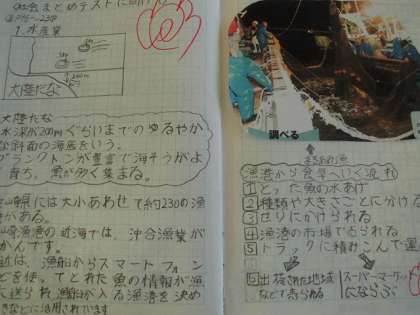 社会まとめテストに向けて
1.水産業
大陸だな
大陸だな
水深が200mぐらいまでのゆるやか
な斜面の海底をいう。
プランクトンが豊富で海そうがよ
く育ち、魚が多く集まる。
県には大小あわせて約230の漁
がある。
漁港の近海では、沖合漁業が
かんです。
近は、漁船からスマートフォン
どを使ってとれた魚の情報が漁
に送られ漁船が入る漁港を決め
きなどに活用されています
調べる
まきあみ漁
漁港から食卓へいく流れ
1とった魚の水あげ
2種類や大きさごとに分ける
3せりにかけられる
4漁港の市場で売られる
5トラックに積みこんで運
6出荷された地域
などで売られる
スーパーマーケッ
にならぶ